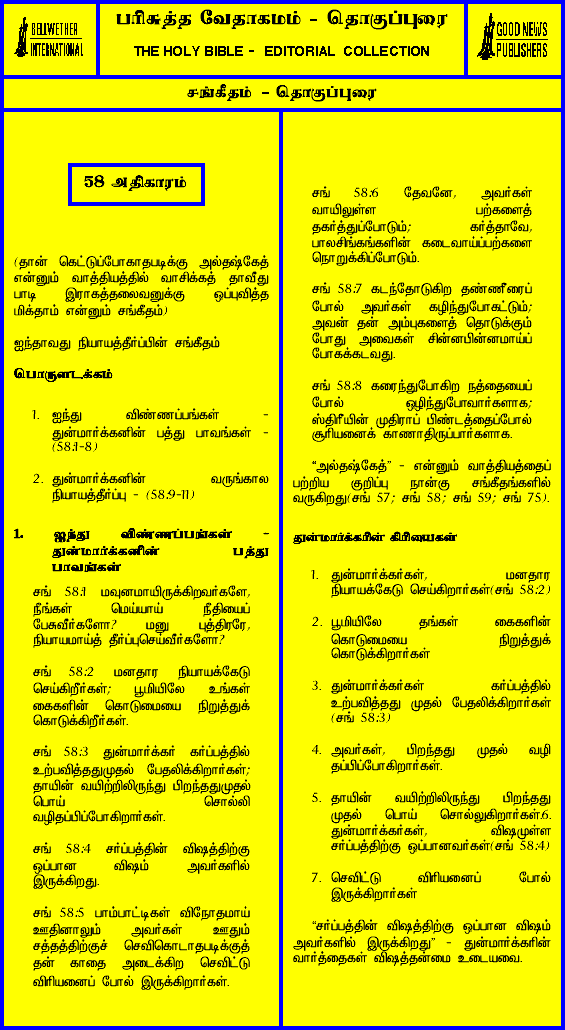 BELLWETHER
INTERNATIONAL
பரிசுத்த வேதாகமம் - தொகுப்புரை
THE HOLY BIBLE - EDITORIAL COLLECTION
GOOD NEWS
PUBLISHERS
சங்கீதம் - தொகுப்புரை
58 அதிகாரம்
(தான் கெட்டுப்போகாதபடிக்கு அல்தஷ்கேத்
என்னும் வாத்தியத்தில் வாசிக்கத் தாவீது
பாடி இராகத்தலைவனுக்கு ஒப்புவித்த
மிக்தாம் என்னும் சங்கீதம்)
ஐந்தாவது நியாயத்தீர்ப்பின் சங்கீதம்
பொருளடக்கம்
1. ஐந்து விண்ணப்பங்கள் -
துன்மார்க்கனின் பத்து பாவங்கள் -
(58:1-8)
2. துன்மார்க்கனின் வருங்கால
நியாயத்தீர்ப்பு - (58:9-11)
1. ஐந்து விண்ணப்பங்கள் -
துன்மார்க்கனின் பத்து
பாவங்கள்
சங் 58:1 மவுனமாயிருக்கிறவர்களே,
நீங்கள் மெய்யாய் நீதியைப்
பேசுவீர்களோ? மனு புத்திரரே,
நியாயமாய்த் தீர்ப்புசெய்வீர்களோ?
சங் 58:2 மனதார நியாயக்கேடு
செய்கிறீர்கள்; பூமியிலே உங்கள்
கைகளின் கொடுமையை நிறுத்துக்
கொடுக்கிறீர்கள்.
சங் 58:3 துன்மார்க்கர் கர்ப்பத்தில்
உற்பவித்ததுமுதல் பேதலிக்கிறார்கள்;
தாயின் வயிற்றிலிருந்து பிறந்ததுமுதல்
பொய் சொல்லி
வழிதப்பிப்போகிறார்கள்.
சங் 58:4 சர்ப்பத்தின் விஷத்திற்கு
ஒப்பான விஷம் அவர்களில்
இருக்கிறது.
சங் 58:5 பாம்பாட்டிகள் விநோதமாய்
ஊதினாலும் அவர்கள் ஊதும்
சத்தத்திற்குச் செவிகொடாதபடிக்குத்
தன் காதை அடைக்கிற செவிட்டு
விரியனைப் போல் இருக்கிறார்கள்.
சங் 58:6 தேவனே, அவர்கள்
வாயிலுள்ள பற்களைத்
தகர்த்துப்போடும்; கர்த்தாவே,
பாலசிங்கங்களின் கடைவாய்ப்பற்களை
நொறுக்கிப்போடும்.
சங் 58:7 கடந்தோடுகிற தண்ணீரைப்
போல் அவர்கள் கழிந்துபோகட்டும்;
அவன் தன் அம்புகளைத் தொடுக்கும்
போது அவைகள் சின்னபின்னமாய்ப்
போகக்கடவது.
சங் 58:8 கரைந்துபோகிற நத்தையைப்
போல் ஒழிந்துபோவார்களாக;
ஸ்திரீயின் முதிராப் பிண்டத்தைப்போல்
சூரியனைக் காணாதிருப்பார்களாக.
"அல்தஷ்கேத்" - என்னும் வாத்தியத்தைப்
பற்றிய குறிப்பு நான்கு சங்கீதங்களில்
வருகிறது(சங் 57; சங் 58; சங் 59; சங் 75).
துன்மார்க்கரின் கிரியைகள்
1. துன்மார்க்கர்கள், மனதார
நியாயக்கேடு செய்கிறார்கள்(சங் 58:2)
2. பூமியிலே தங்கள் கைகளின்
கொடுமையை நிறுத்துக்
கொடுக்கிறார்கள்
3. துன்மார்க்கர்கள் கர்ப்பத்தில்
உற்பவித்தது முதல் பேதலிக்கிறார்கள்
(சங் 58:3)
4. அவர்கள், பிறந்தது முதல் வழி
தப்பிப்போகிறார்கள்.
5. தாயின் வயிற்றிலிருந்து பிறந்தது
முதல் பொய் சொல்லுகிறார்கள்.6.
துன்மார்க்கர்கள், விஷமுள்ள
சர்ப்பத்திற்கு ஒப்பானவர்கள்(சங் 58:4)
7. செவிட்டு விரியனைப் போல்
இருக்கிறார்கள்
"சர்ப்பத்தின் விஷத்திற்கு ஒப்பான விஷம்
அவர்களில் இருக்கிறது" - துன்மார்க்கரின்
வார்த்தைகள் விஷத்தன்மை உடையவை.